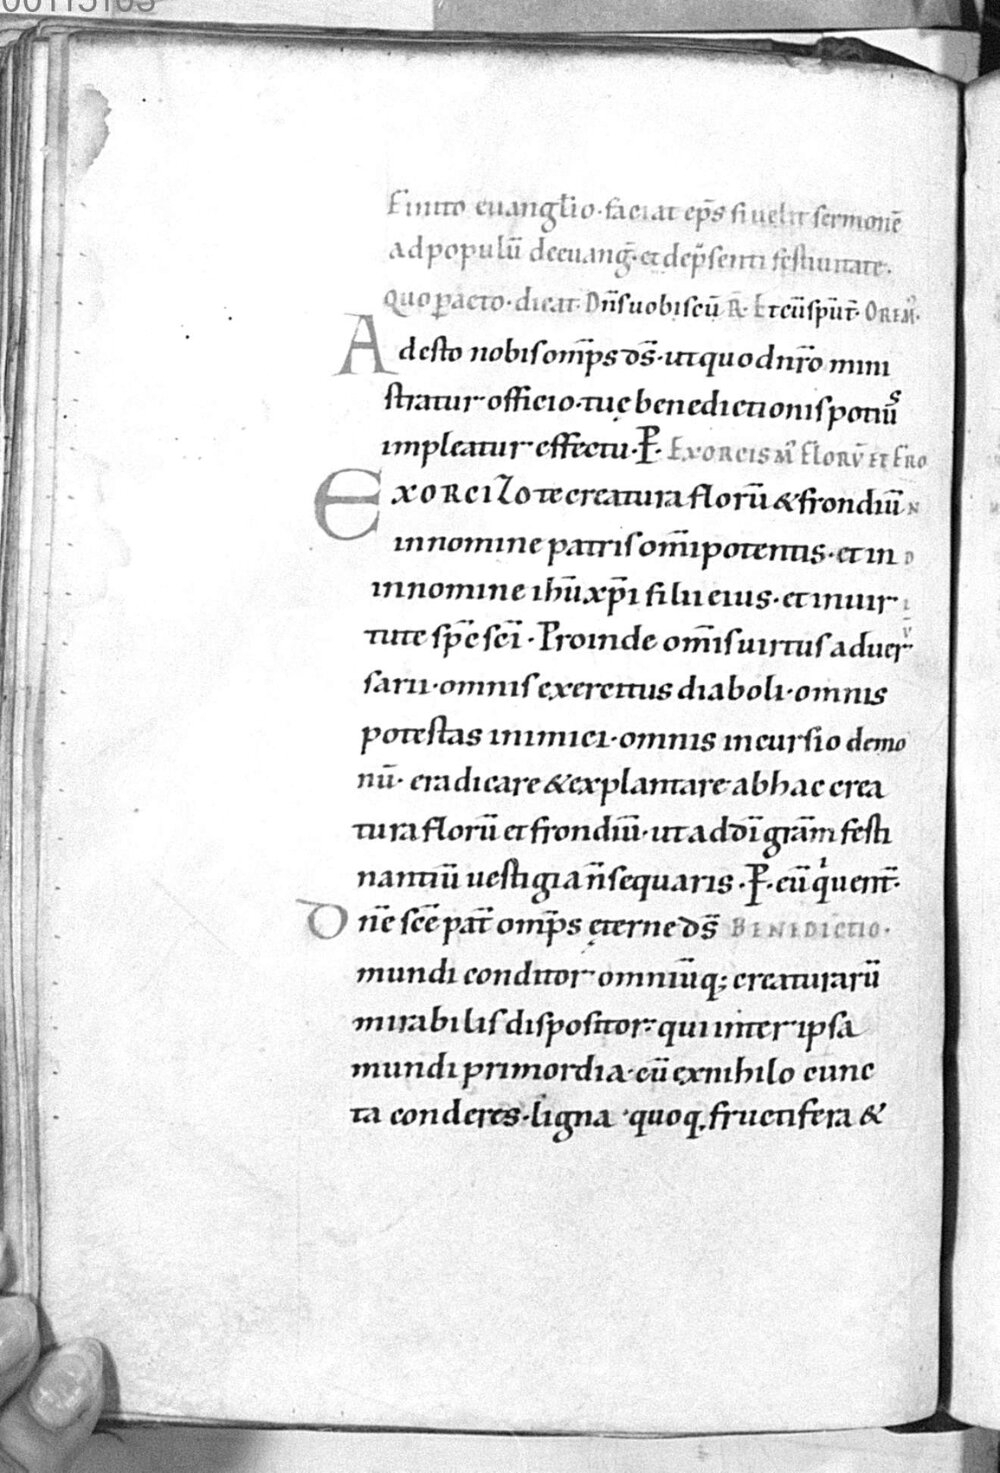 00115103
Finito euangl̄io · faciat ep̄s si uelit sermonē
ad populū de euanḡ · et de p̄senti festiuitate ·
quo ꝑacto · dicat · Dn̄s uobiscū R̄ · Et cū sp̄ut̄ · OREM̄ ·
Adesto nobis om̄ps ds̄ · ut quod nr̄o mini
stratur officio · tuę benedictionis potiuˢ
impleatur effectu · P̄ · EXORCISM̄ FLORŪ ET FRO
Exorcizo te creatura florū & frondiū N
in nomine patris om̄ipotentis · et in D
in nomine ih̄u xp̄i filii eius · et in uir I
tute sp̄c sc̄i · Proinde om̄is uirtus aduer Ū
sarii · omnis exercitus diaboli · omnis
potestas inimici · omnis incursio demo
nū · eradicare & explantare ab hac crea
tura florū et frondiū · ut ad dī gr̄am festi
nantiū uestigia n̄ sequaris · P̄ · eū qͥ uent̄ ·
Dn̄e sc̄e pat̄ om̄ps ęterne ds̄ BENEDICTIO ·
mundi conditor omniūq; creaturarū
mirabilis dispositor · qui inter ipsa
mundi primordia · cū ex nihilo cunc
ta conderes · ligna quoq, fructifera &